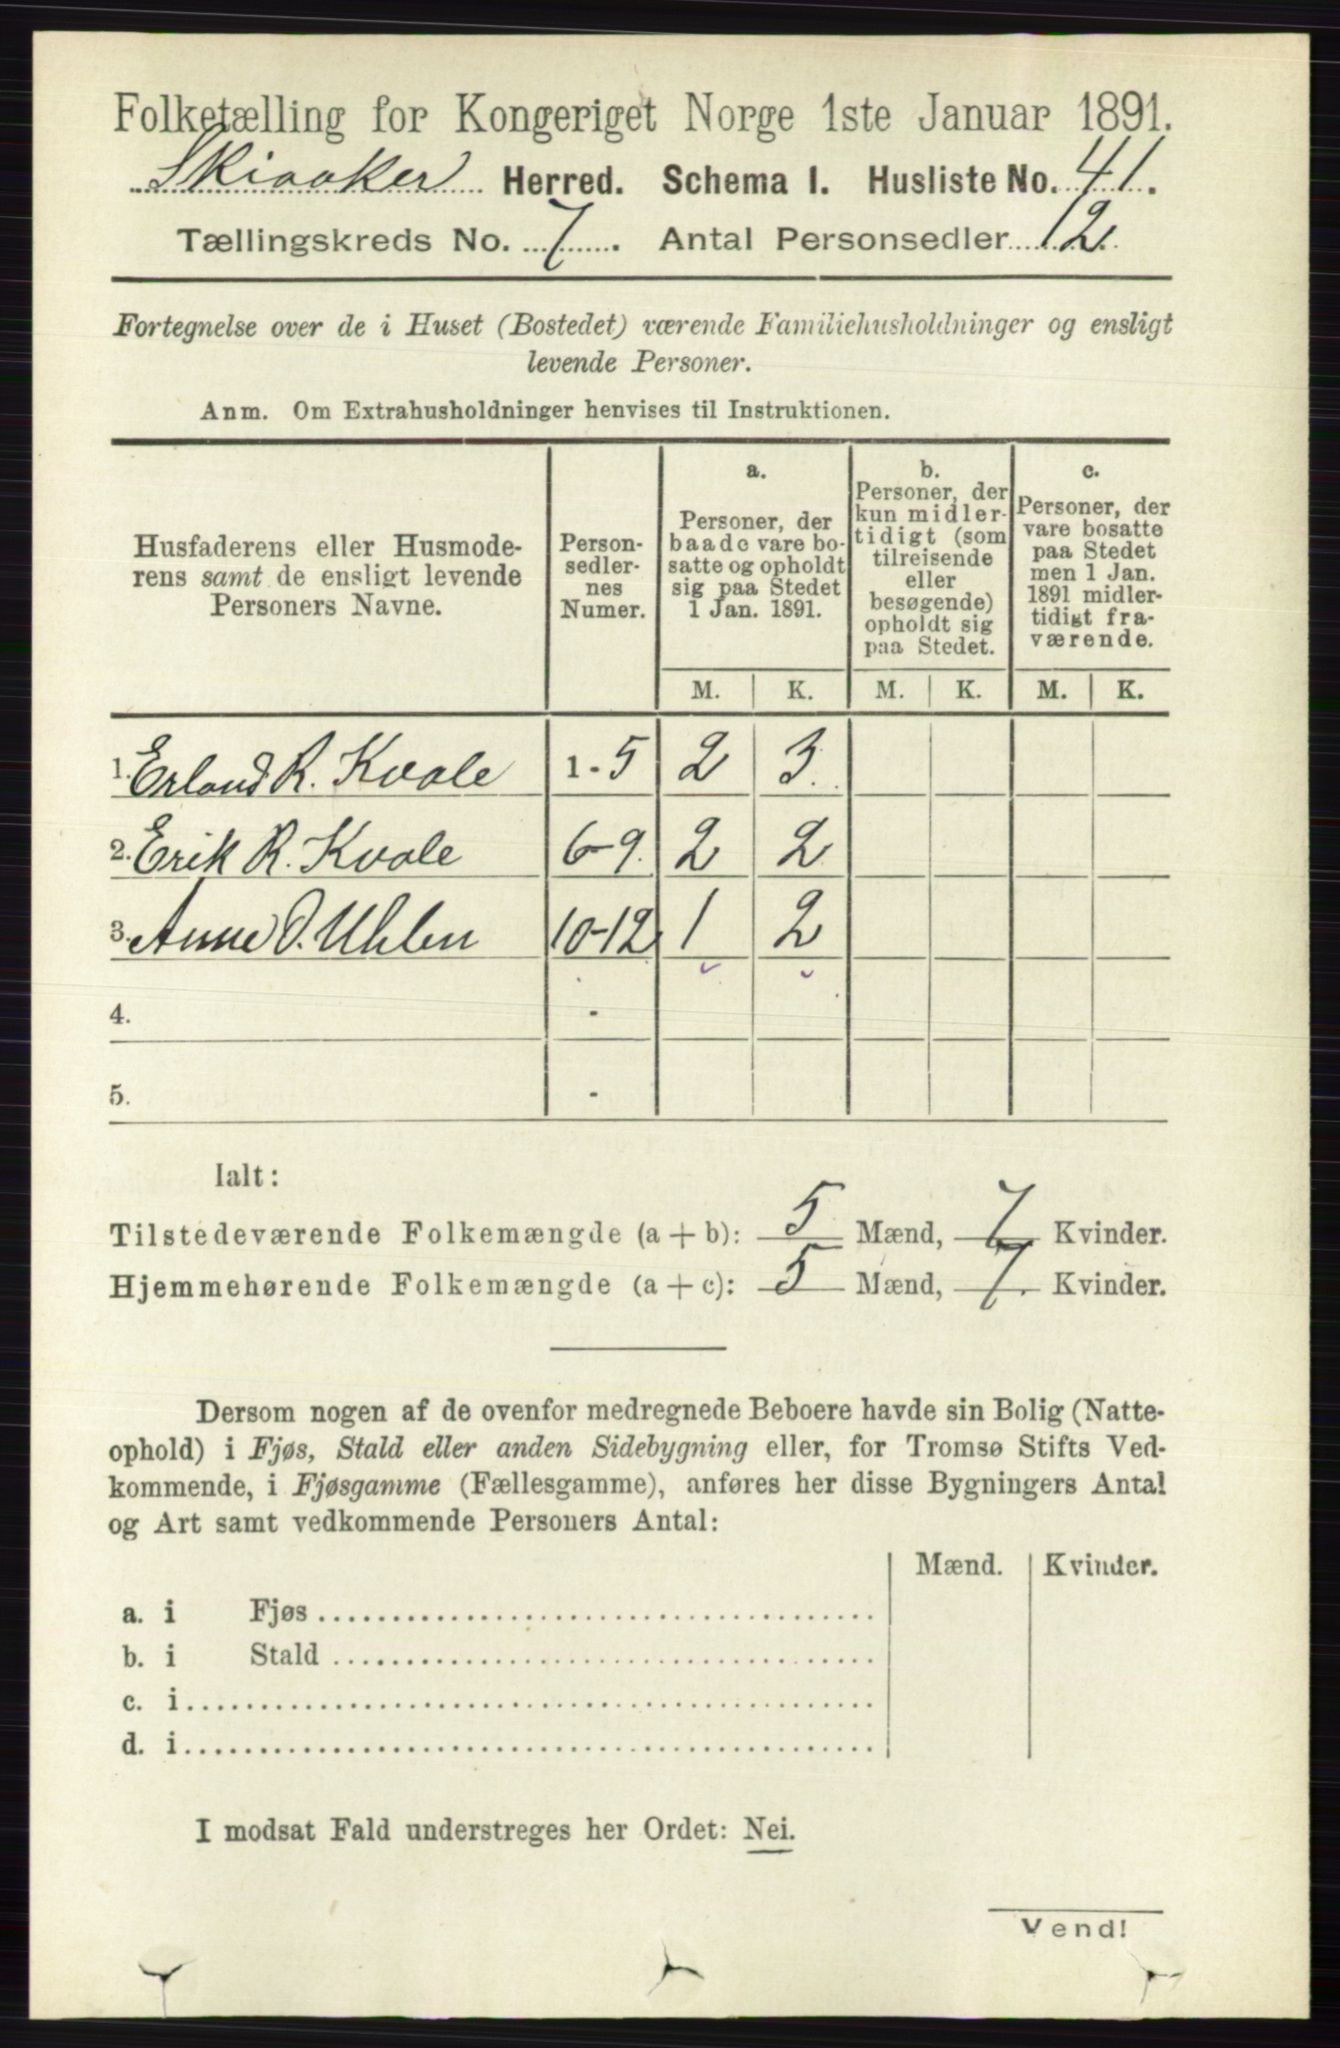 Folketælling for Kongeriget Norge 1ste Januar 1891.
Skiaaker Herred. Schema I. Husliste No. 41.
Tællingskreds No. 7. Antal Personsedler 12
Fortegnelse over de i Huset (Bostedet) værende Familiehusholdninger og ensligt
levende Personer.
Anm. Om Extrahusholdninger henvises til Instruktionen.
Husfaderens eller Husmode-
rens samt de ensligt levende
Personers Navne.
Person-
sedler-
nes
Numer.
a.
Personer, der
baade vare bo-
satte og opholdt
sig paa Stedet
1 Jan. 1891.
b.
Personer, der
kun midler-
tidigt (som
tilreisende
eller
besøgende)
opholdt sig
paa Stedet.
c.
Personer, der
vare bosatte
paa Stedet
men 1 Jan.
1891 midler-
tidigt fra-
værende.
M. K. M. K. M. K.
1. Erland R. Kvale 1-5 2 3
2. Erik R. Kvale 6-9. 2 2
3. Anne O. Uhlen 10-12 1 2
4. -
5. -
Ialt:
Tilstedeværende Folkemængde (a + b): 5 Mænd, 7 Kvinder.
Hjemmehørende Folkemængde (a + c): 5 Mænd, 7. Kvinder.
Dersom nogen af de ovenfor medregnede Beboere havde sin Bolig (Natte-
ophold) i Fjøs, Stald eller anden Sidebygning eller, for Tromsø Stifts Ved-
kommende, i Fjøsgamme (Fællesgamme), anføres her disse Bygningers Antal
og Art samt vedkommende Personers Antal:
Mænd. Kvinder.
a. i Fjøs
b. i Stald
c. i
d. i
I modsat Fald understreges her Ordet: Nei.
Vend!